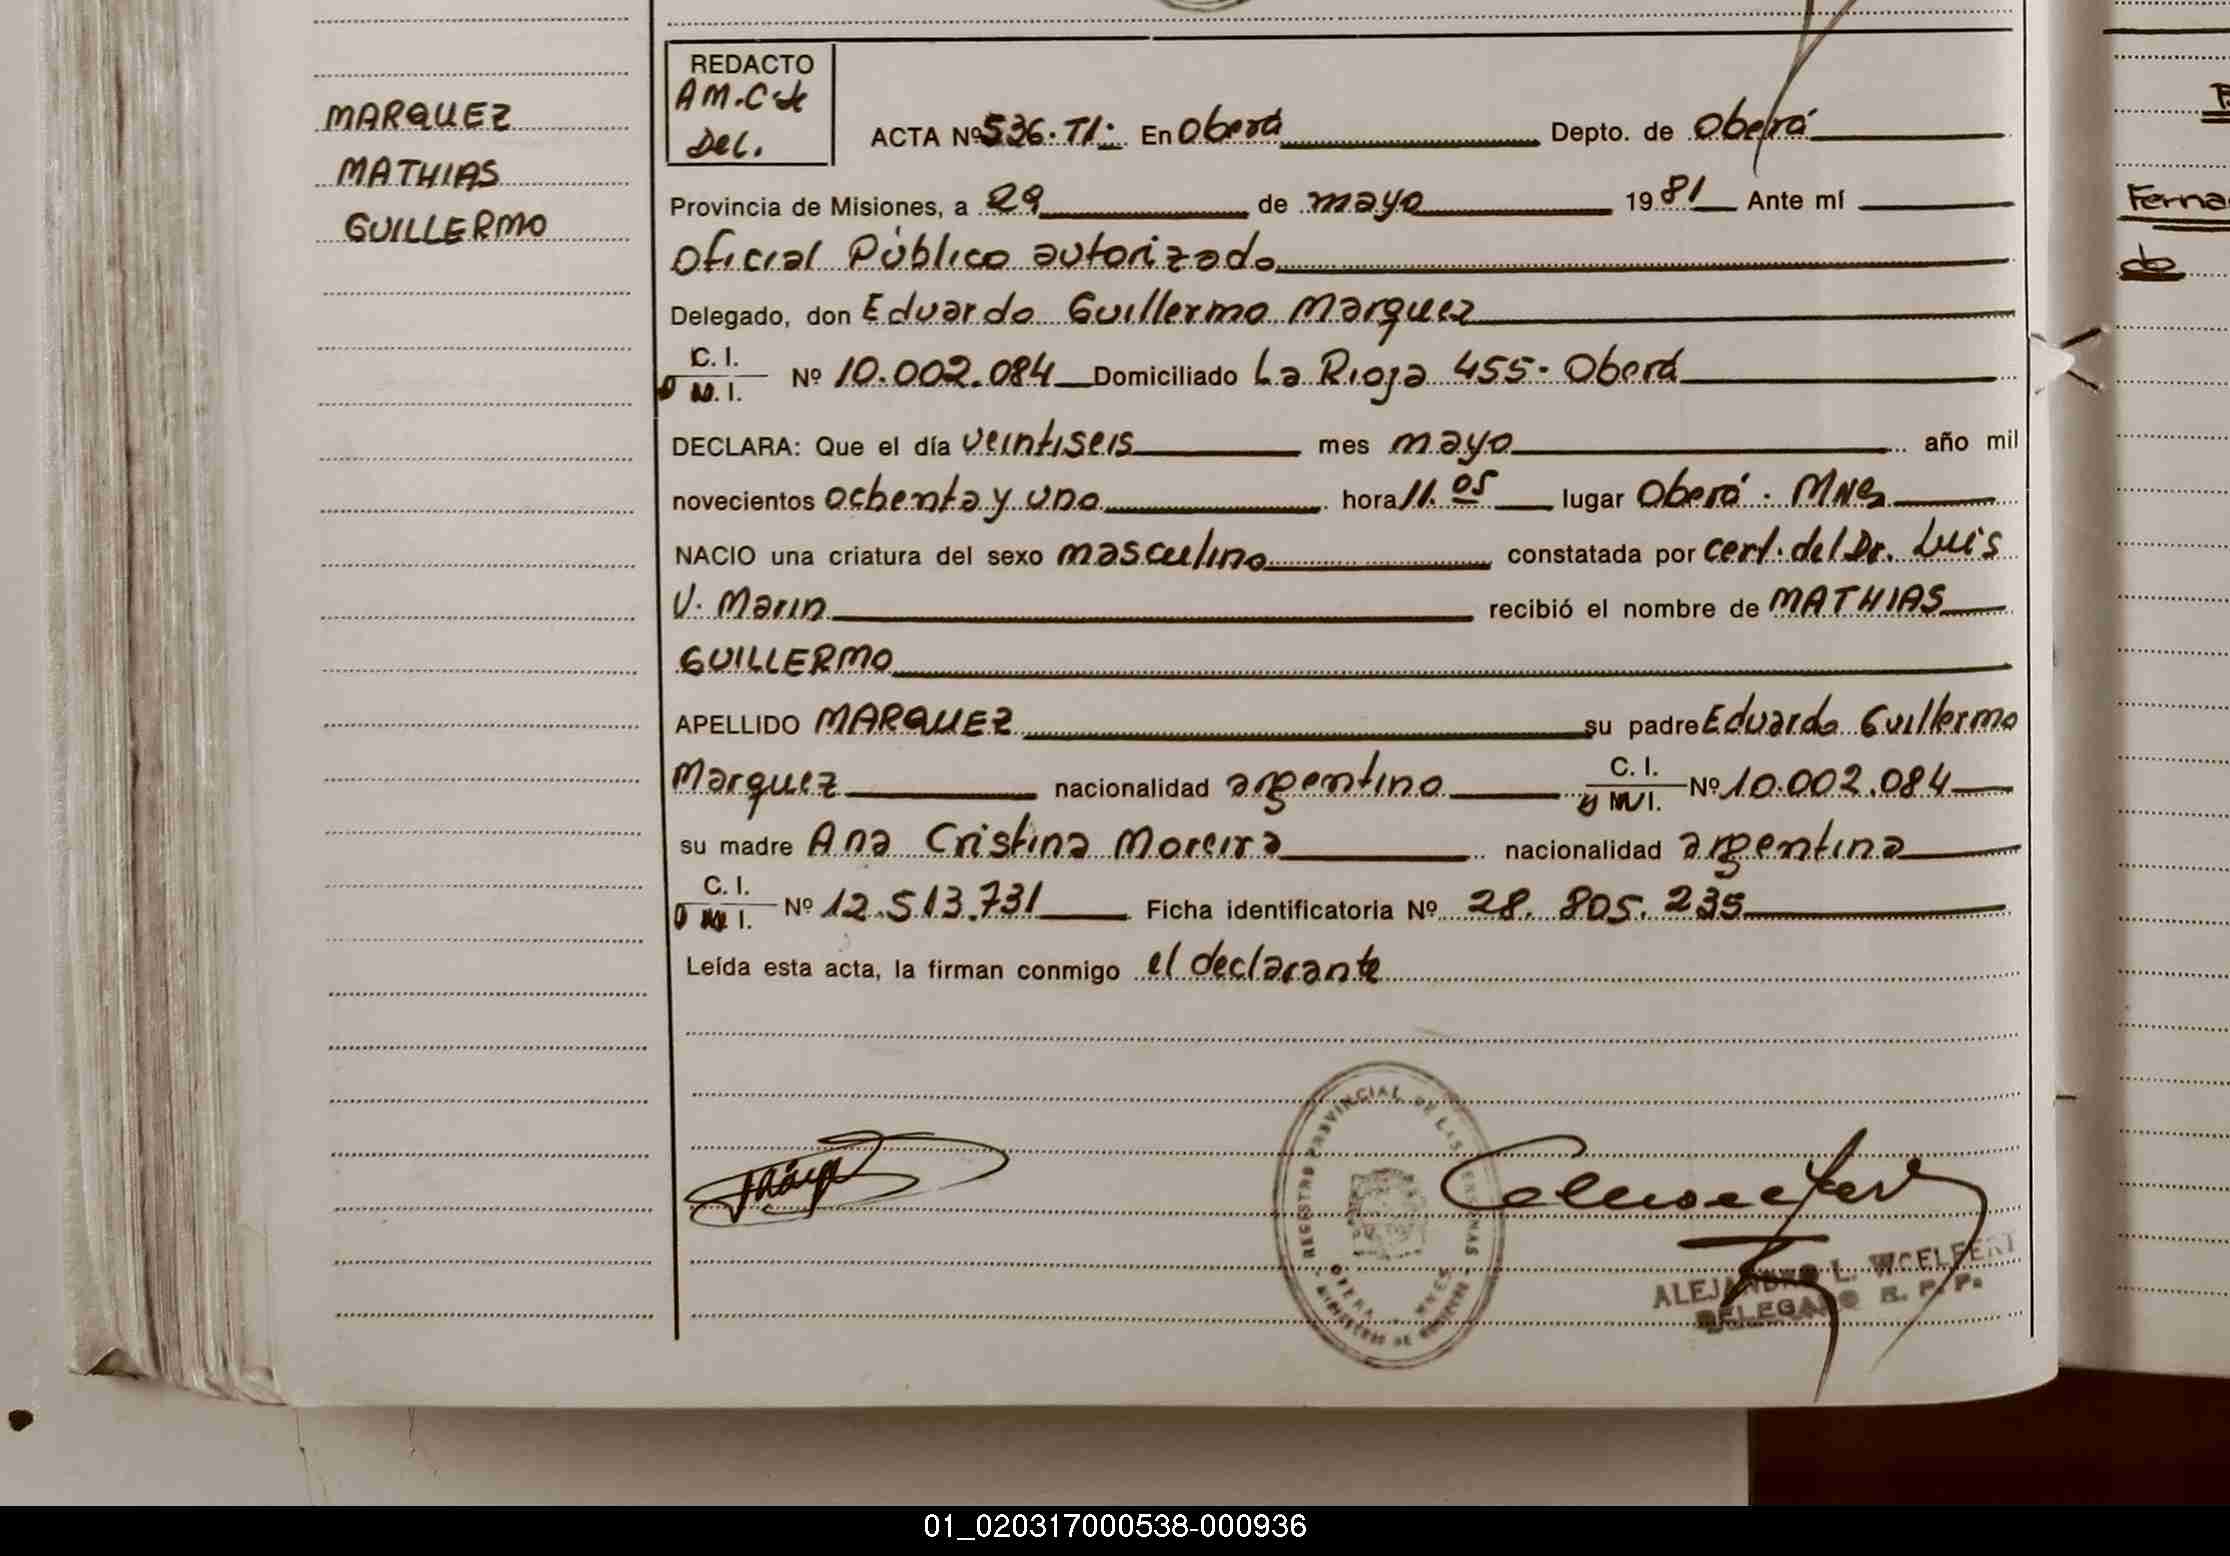 MARQUEZ
MATHIAS
GUILLERMO
REDACTO
AM.C.de
Del.
ACTA Nº 536.TI. En Oberá Depto. de Oberá
Provincia de Misiones, a 29 de mayo 1981 Ante mí
Oficial Público autorizado
Delegado, don Eduardo Guillermo Marquez
C. I.
D N. I. Nº 10.002.084 Domiciliado La Rioja 455. Oberá
DECLARA: Que el día veintiseis mes mayo año mil
novecientos ochenta y uno hora 11.05 lugar Oberá. Mnes
NACIO una criatura del sexo masculino constatada por cert. del Dr. Luis
V. Marin recibió el nombre de MATHIAS
GUILLERMO
APELLIDO MARQUEZ su padre Eduardo Guillermo
Marquez nacionalidad argentino C. I. Nº 10.002.084
su madre Ana Cristina Moreira nacionalidad argentina
C. I. Nº 12.513.731 Ficha identificatoria Nº 28.805.235
Leída esta acta, la firman conmigo el declarante
REGISTRO PROVINCIAL DE LAS PERSONAS
OBERA MNES
MINISTERIO DE GOBIERNO
ALEJANDRO L. WOELFERT
DELEGADO R. P. P.
Ferna
do
01_020317000538-000936